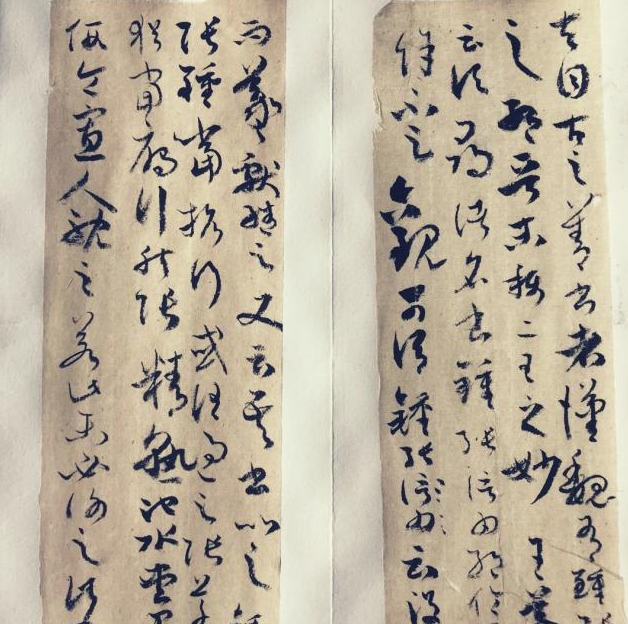 夫自古之善書者漢魏有鍾張
之絕晉末稱二王之妙王羲
云頃尋諸名書鍾張信為絕倫
餘不足觀可謂鍾張信為云沒
而羲獻繼之又云吾書比之
張鍾當抗行或謂過之張草
猶當雁行然張精熟池水盡墨
假令寡人耽之若此未必謝之